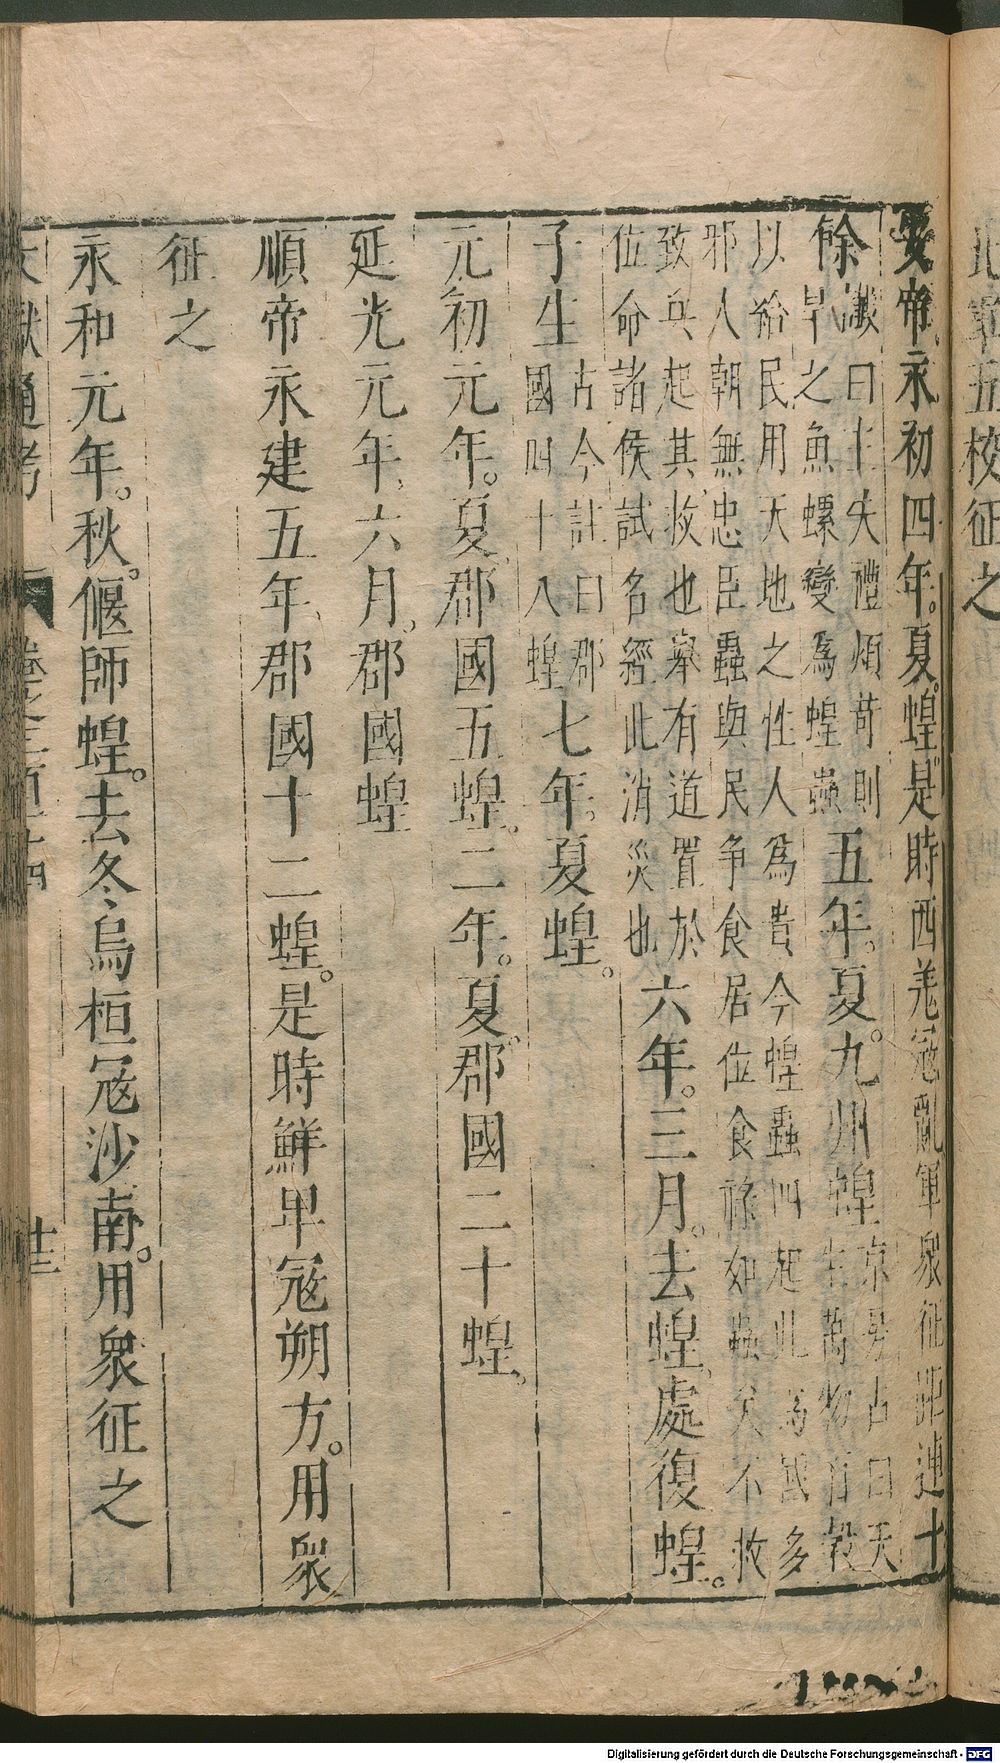 北軍五校征之
安帝永初四年夏蝗是時西羌寇亂軍衆征距連十
餘讖曰主失禮煩苛則旱之魚螺變爲蝗蟲五年夏九州蝗京房占曰天生萬物百穀
以給民用天地之性人爲貴今蝗蟲四起此爲國多
邪人朝無忠臣蟲與民爭食居位食祿如蟲矣不救
致兵起其救也舉有道置於
位命諸侯試名經此消災也六年三月去蝗處復蝗
子生古今註曰郡國四十八蝗七年夏蝗
元初元年夏郡國五蝗二年夏郡國二十蝗
延光元年六月郡國蝗
順帝永建五年郡國十二蝗是時鮮卑寇朔方用衆
征之
永和元年秋偃師蝗去冬烏桓寇沙南用衆征之
文獻通考
卷之三百十四
廿三
Digitalisierung gefördert durch die Deutsche Forschungsgemeinschaft - DFG